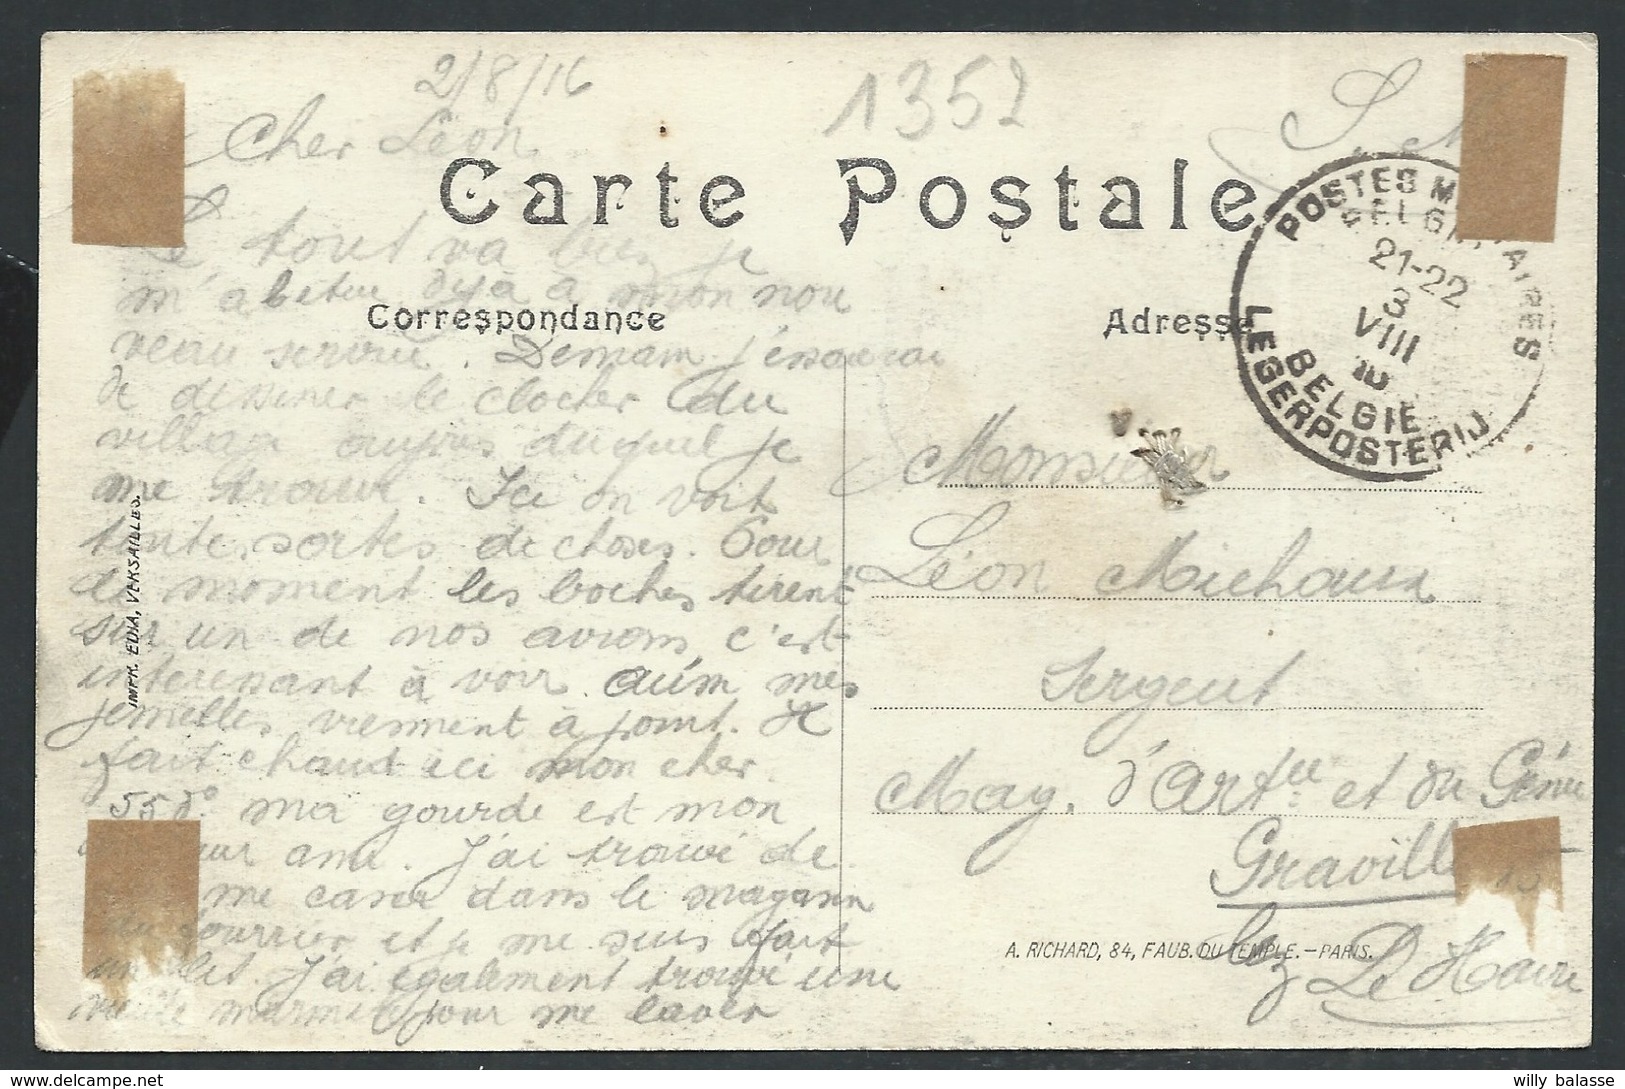 2/8/16
1352
S. M.
Cher Léon
Carte Postale
POSTES MILITAIRES
BELGIQUE
21-22
3
VIII
16
BELGIE
LEGERPOSTERIJ
Le tout va bien je
m'abitue déjà à mon nou
Correspondance
Adresse
veau service. Demain j'essaierai
de dessiner le clocher du
village auprès duquel je
me trouve. Ici on voit
toute sortes de choses. Pour
le moment les boches tirent
sur un de nos avions c'est
interessant à voir. aussi mes
jumelles viennent à point. Il
fait chaud ici mon cher.
55d° ma gourde est mon
ami. J'ai trouvé de
me caser dans le magasin
du fourrier et je me suis fait
un lit. J'ai également trouvé une
vieille marmite pour me laver
IMPR. EDIA, VERSAILLES.
Monsieur
Léon Michaux
Sergent
Mag. d'Artie et du Génie
Graville
lez Le Havre
A. RICHARD, 84, FAUB. DU TEMPLE.–PARIS.
willy balasse